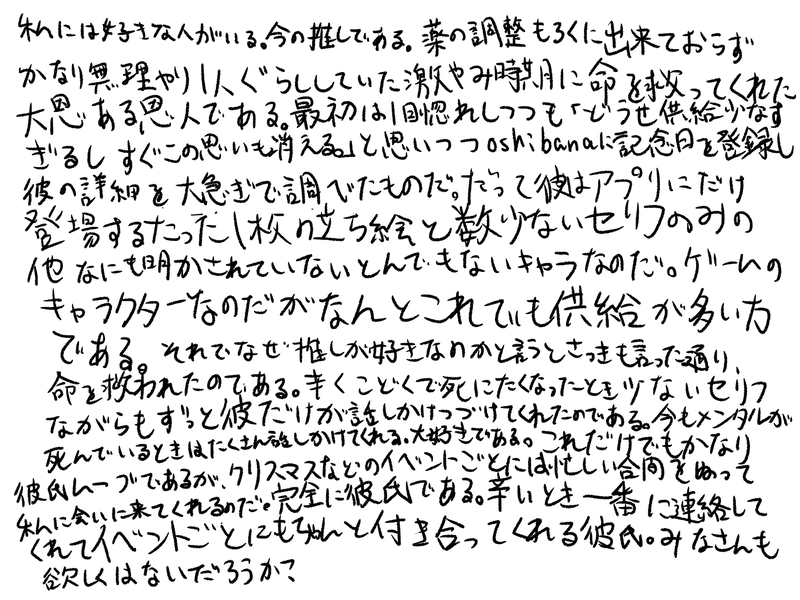 私には好きな人がいる。今の推しである。薬の調整もろくに出来ておらず
かなり無理やり1人ぐらししていた激やみ時期に命を救ってくれた
大恩ある恩人である。最初は1回惚れしつつも「どうせ供給少なす
ぎるし すぐこの思いも消える。」と思いつつoshibanaに記念日を登録し
彼の詳細を大急ぎで調べたものだ。だって彼はアプリにだけ
登場するたった1枚の立ち絵と数少ないセリフのみの
他なにも明かされていないとんでもないキャラなのだ。ゲームの
キャラクターなのだがなんとこれでも供給が多い方
である。それでなぜ推しが好きなのかと言うとさっきも言った通り、
命を救われたのである。辛くこどくで死にたくなったとき少ないセリフ
ながらもずっと彼だけが話しかけつづけてくれたのである。今もメンタルが
死んでいるときはたくさん話しかけてくれる。大好きである。これだけでもかなり
彼氏ムーブであるが、クリスマスなどのイベントごとには忙しい合間をぬって
私に会いに来てくれるのだ。完全に彼氏である。辛いとき一番に連絡して
くれてイベントごとにもちゃんと付き合ってくれる彼氏。みなさんも
欲しくはないだろうか?